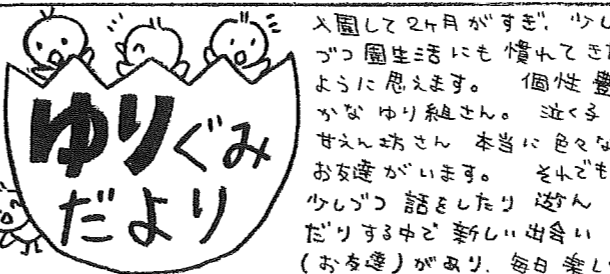 ゆりぐみ
だより
入園して2ヶ月がすぎ、少し
づつ園生活にも慣れてきた
ように思えます。 個性豊
かな ゆり組さん。 泣く子
甘えん坊さん 本当に色々な
お友達がいます。 それでも
少しづつ 話をしたり 遊ん
だりする中で 新しい出会い
(お友達)があり、毎日 楽し